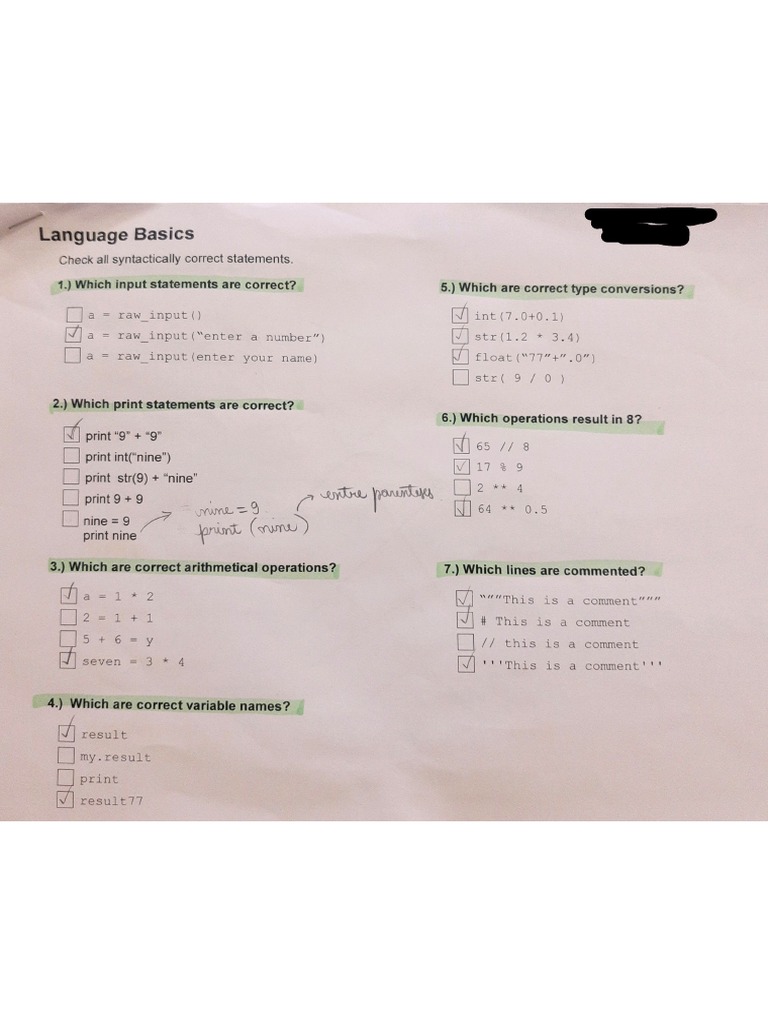 Language Basics
Check all syntactically correct statements.
1.) Which input statements are correct?
a = raw_input()
a = raw_input(“enter a number”)
a = raw_input(enter your name)
2.) Which print statements are correct?
print “9” + “9”
print int(“nine”)
print str(9) + “nine”
print 9 + 9
nine = 9
print nine
nine = 9
print (nine)
entre parenteses
3.) Which are correct arithmetical operations?
a = 1 * 2
2 = 1 + 1
5 + 6 = y
seven = 3 * 4
4.) Which are correct variable names?
result
my.result
print
result77
5.) Which are correct type conversions?
int(7.0+0.1)
str(1.2 * 3.4)
float(“77”+”.0”)
str( 9 / 0 )
6.) Which operations result in 8?
65 // 8
17 % 9
2 ** 4
64 ** 0.5
7.) Which lines are commented?
“””This is a comment”””
# This is a comment
// this is a comment
'''This is a comment'''